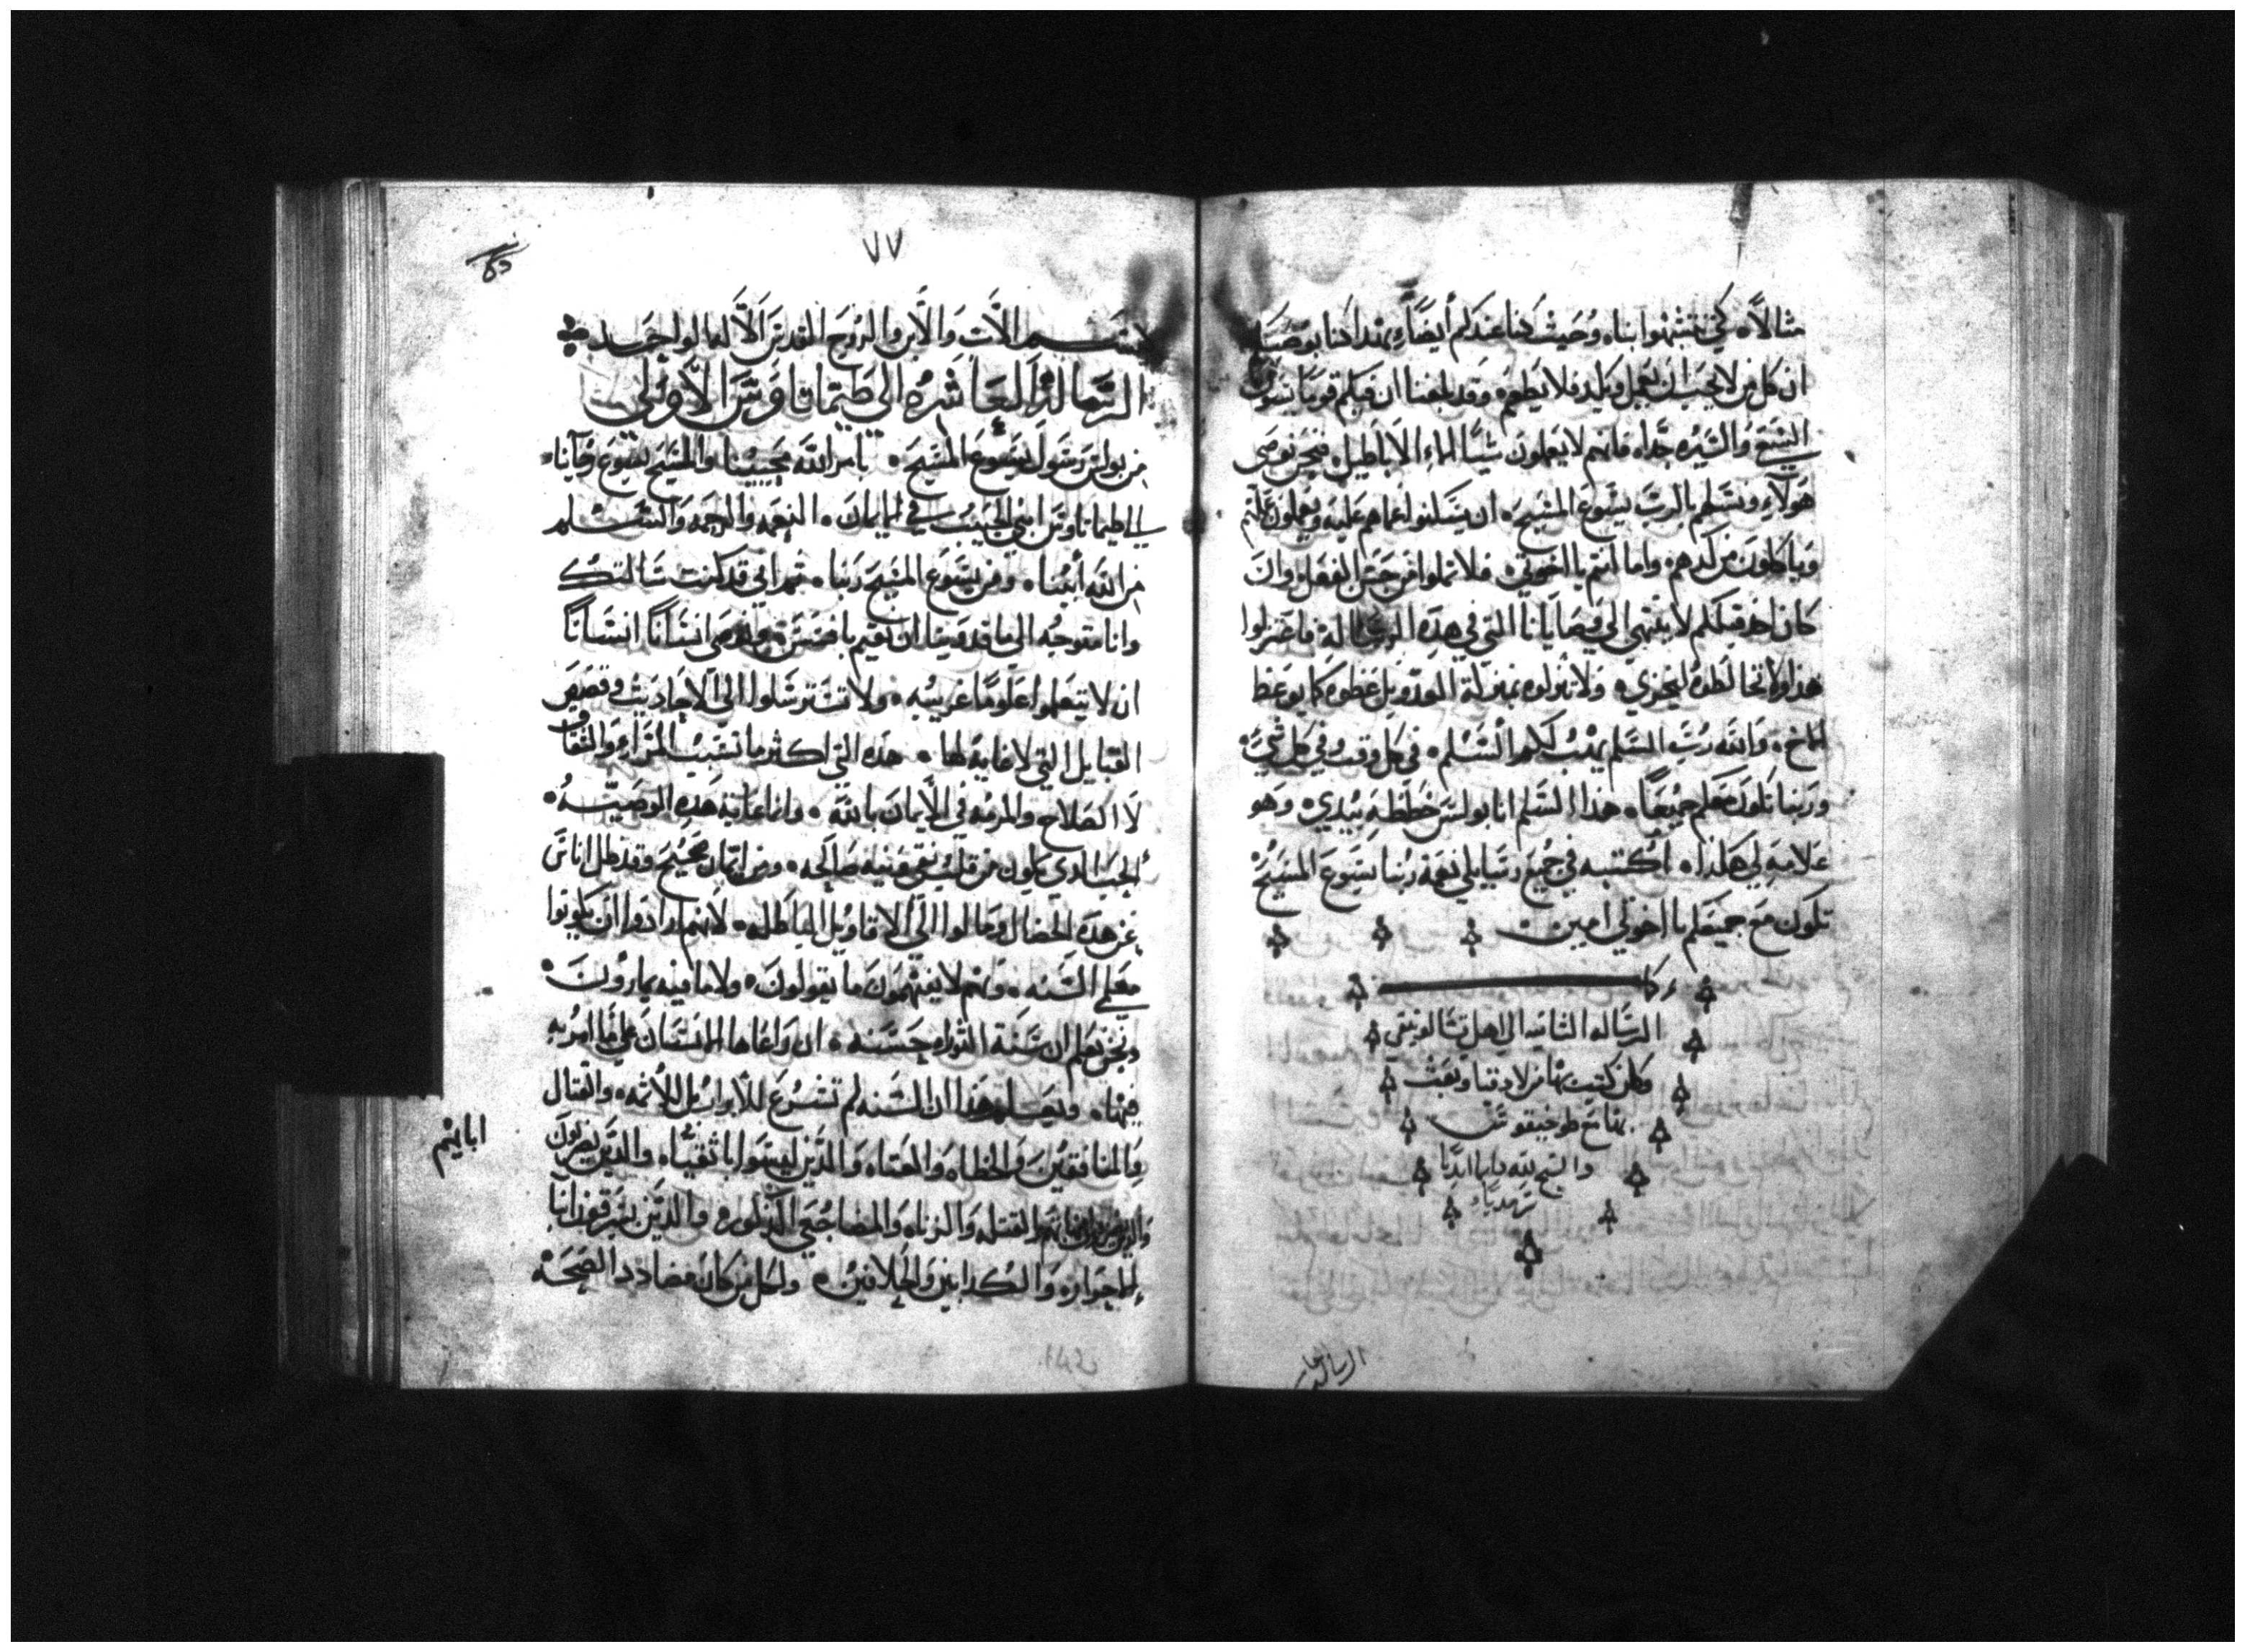 مثالاً كي تتشبهوا بناه وحيث كنا عندكم أيضاً بهدا كنا نوصيكم
ان كل من لا يحب ان يعمل ويكد فلا يطعم وقد بلغنا ان قبلكم قوماً يسيرون
السيره جداه فانهم لا يعملون شياً الا الاباطيل فنحن نوصي
هولاء ونسلهم بالرب يسوع المسيح ان يكونوا عملهم ويعملون
وياكلون من كدهم واما انتم يا اخوتي فلا تملوا من حسن الفعل وان
كان احد قبلكم لا ينتهي الي وصايانا التي في هده الرساله فاعتزلوا
هدا ولا تخالطوه ليخزي ولا تنزلوه بمنزلة العدو بل عظوه كما يوعظ
الاخ والله رب السلم يهب لكم السلم في كل وقت وفي كل شي
وربنا يكون معكم جميعاً هدا السلم انا بولس خططته بيدي وهو
علامه لي هكدا اكتبه في جميع رسايلي نعمة ربنا يسوع المسيح
تكون مع جميعكم يا اخوتي امين
الرساله الثانيه الي اهل تسالونيقي
وكان كتبت بها من لادقيا وبعث
بها مع طوخيقوس
والسبح لله دايما ابديا
سرمديا
الرساله
٧٧
بسم الاب والابن والروح القدس الاله الواحد
الرساله العاشره الي طيماتاوس الاولي
من بولس رسول يسوع المسيح بامر الله محيينا والمسيح يسوع رجانا
الي طيماتاوس ابني الحبيب في الايمان النعمه والرحمه والسلم
من الله أبينا ومن يسوع المسيح ربنا ثم اني قد كنت سالتك
وانا متوجه الي ماقدونيا ان تقيم بافسس وتوصي انساناً انساناً
ان لا يتعلموا علوماً غريبه ولا تسترسلوا الي الاحاديث وقصص
القبايل التي لا غاية لها هده التي اكثر ما تسبب المراء والشقاق
لا الصلاح والمرمه في الايمان بالله وانما غاية هده الوصيه
الحب الدي يكون من قلب نقي ونيه صالحه ومن ايمان صحيح وقد ضل اناس
عن هده الخصال ومالوا الي الاقاويل الباطله لانهم ارادوا ان يكونوا
معلمي السنه وهم لا يفهمون ما يقولون ولا ما فيه يمارون
ونحن نعلم ان سنة التوراه حسنه ان راعاها الانسان علي ما امر به
فيها ويعلم هدا ان السنه لم تشرع للأبرار بل للأثمه والقتال
والمنافقين والخطاه والعتاه والدين ليسوا باتقياء والدين يضربون
اباءهم وامهاتهم والقتله والزناه والمضاجعي الدكوره والدين يسرقون ابنا
الاحراره والكدابين والحلافين ولكل من كان مضادد الصحه
اباءهم